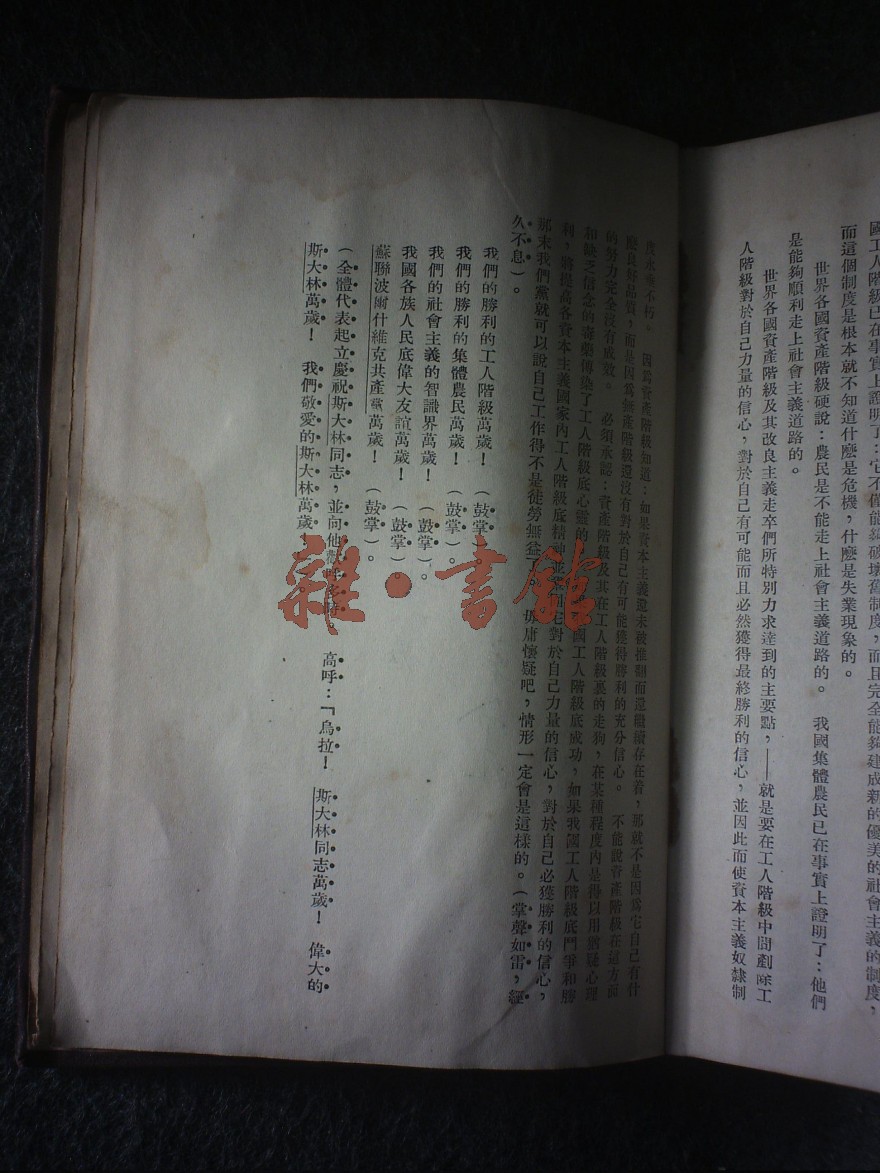 國工人階級已在事實上證明了：它不僅能夠破壞舊制度，而且完全能夠建成新的優美的社會主義的制度，
而這個制度是根本就不知道什麼是危機，什麼是失業現象的。
世界各國資產階級硬說：農民是不能走上社會主義道路的。 我國集體農民已在事實上證明了：他們
是能夠順利走上社會主義道路的。
世界各國資產階級及其改良主義走卒們所特別力求達到的主要點，——就是要在工人階級中間剷除工
人階級對於自己力量的信心，對於自己有可能而且必然獲得最終勝利的信心，並因此而使資本主義奴隸制
度永垂不朽。 因爲資產階級知道：如果資本主義還未被推翻而還繼續存在着，那就不是因爲它自己有什
麼良好品質，而是因爲無產階級還沒有對於自己有可能獲得勝利的充分信心。 不能說資產階級在這方面
的努力完全沒有成效。 必須承認：資產階級及其在工人階級裏的走狗，在某種程度內是得以用猶疑心理
和缺乏信念的毒藥傳染了工人階級底心靈的。 國工人階級底成功，如果我國工人階級底鬥爭和勝
利，將提高各資本主義國家內工人階級底精神並 它對於自己力量的信心，對於自己必獲勝利的信心，
那末我們黨就可以說自己工作得不是徒勞無益了。 毋庸懷疑吧，情形一定會是這樣的。（掌聲如雷，經
久不息）。
我們的勝利的工人階級萬歲！ （鼓掌）。
我們的勝利的集體農民萬歲！ （鼓掌）。
我們的社會主義的智識界萬歲！ （鼓掌）。
我國各族人民底偉大友誼萬歲！ （鼓掌）。
蘇聯波爾什維克共產黨萬歲！ （鼓掌）。
（全體代表起立慶祝斯大林同志，並向他歡呼 。 高呼：「烏拉！ 斯大林同志萬歲！ 偉大的
斯大林萬歲！ 我們敬愛的斯大林萬歲！
雜·書館